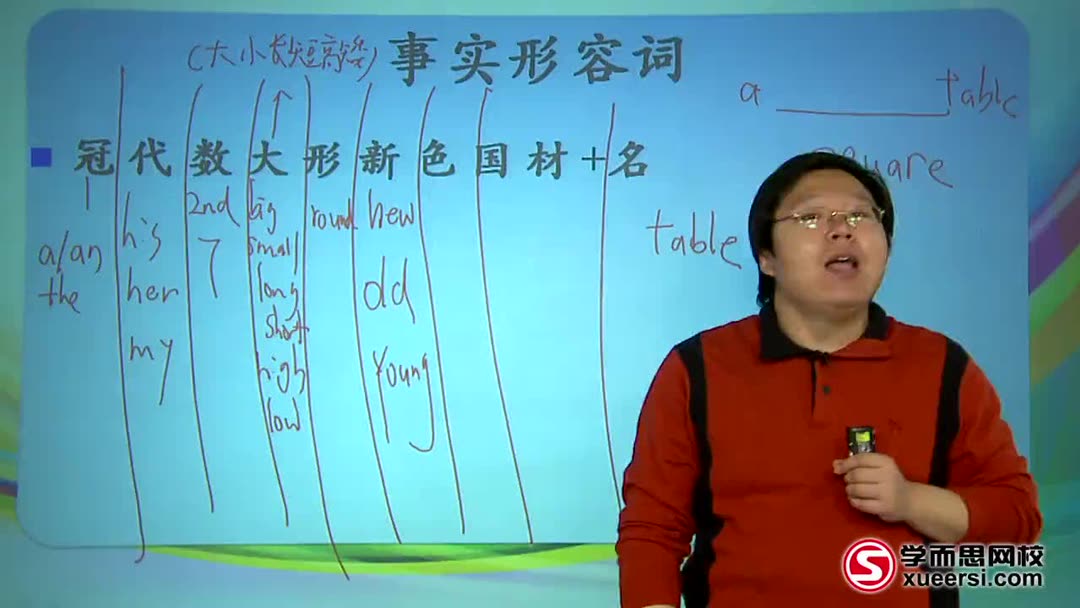 (大小长短高矮)
事实形容词
a ________ table
square
冠代数大形新色国材+名
a/an
the
his
her
my
2nd
7
big
small
long
short
high
low
round
new
old
young
table
学而思网校
xueersi.com